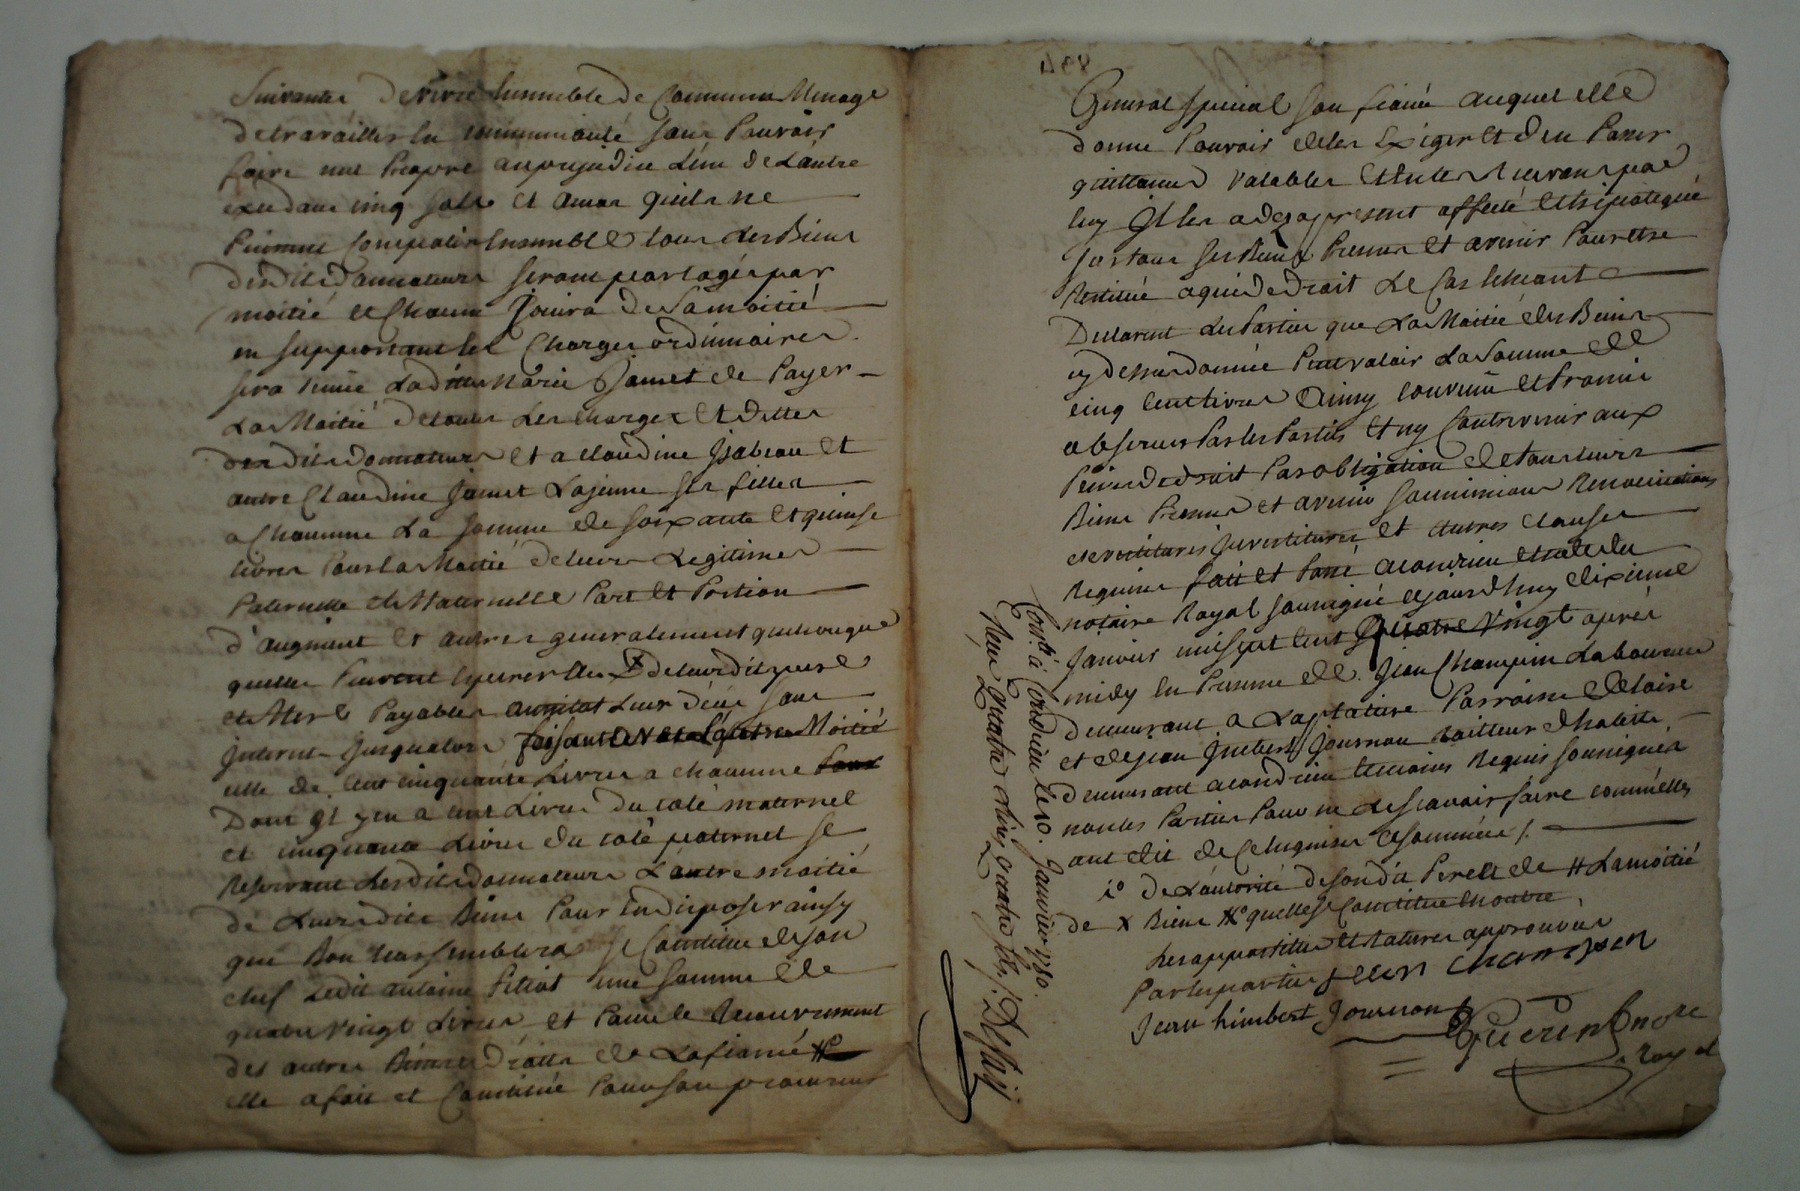 Suivantes De vivre Ensemble De Commun Menage
de travailler En communauté sans Pouvoir
faire nul Propre au prejudice L'un De L'autre
et ou
Puissent Compatir Ensemble tous Les Biens
Desdits Donnateurs seront partagés par
moitié et Chacun Jouira De Sa moitié
en supportant les Charges ordinnaires
sera tenüe Laditte Marie Jamet de Payer
La Moitié De toutes Les charges Et Dettes
desdits Donnateurs Et a Claudine Isabeau Et
autre Claudine Jamet La jeune ses filles
a Chacunne La somme de soixante Et quinse
livres Pour La Moitié De leurs Legitimes
Paternelle et Maternelle Part Et Portion
d'augment Et autres generalement quelconque
quelles Peuvent Esperer des X De leursdits pere
et Mere Payables aussitot Leur Décés sans
Interest Jusqualors faisant avec L'autre Moitié
celle de Cent cinquante Livres a chacunne
Dont Il y en a cent Livres Du coté maternel
et cinquante Livres du coté paternel se
Reservant Lesdits Donnateurs L'autre moitié
de Leursdits Biens Pour En disposer ainsy
que Bon Leur semblera se Constitue de son
chef Ledit antoine Pitiot une somme de
quatre vingt Livres et Pour le Recouvrement
des autres Biens Droits de La fiancé
elle a fait et Constitué Pour son procureur
894
General special son fiancé auquel elle
donne Pouvoir de les Exiger Et d'en Passer
quittances valables Et toutes receues par
luy Il les a des apresent affecté Et hipotequé
sur tous ses Biens Presens et avenir Pour Etre
Restitué a qui de droit Le Cas Echeant
Declarent Les Parties que La Moitié des Biens
cy dessus donnée Peut valoir La somme de
cinq Cent livres ainsy convenu Et Promis
observer Par les Parties Et ny Contrevenir aux
Peines De droit Par obligation de tous leurs
Biens Presens et avenir soumissions Renonciations
investitures et autres clauses
Requises fait et Passé a condrieu Etude du
notaire Royal soussigné ce jourd'huy dixieme
Janvier mil sept cent Quatre Vingt aprés
midy En Presence de Jean Champin Laboureur
demeurant a Parroisse de Loire
et de jean Imbert Journou tailleur d'habits
demeurant a condrieu temoins Requis soussignés
non les Parties Pour ne le scavoir faire comm'elles
ont dit De Ce Enquises Et sommées /.
1° De L'autorité De son Dit Pere Et de # La moitié
de X Biens #° quelle se Constitue En outre
les apportilles Et Ratures approuvées
Par les parties Jean Champin
Jean himbert Journou
Guerin nore
Royal
Con.lé à Condrieu Le 10. Janvier 1780.
Reçu Quatre Livres quatre s.